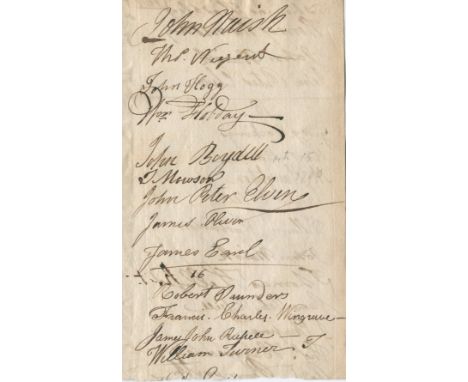 John Naish
Thos. Nugent
John Hogg
Wm. Hobday
John Boydell
J Mowson
John Peter Elven
James Oliver
James Earl
16
Robert Saunders
Francis Charles Wingrave
James John Russell
William Turner T